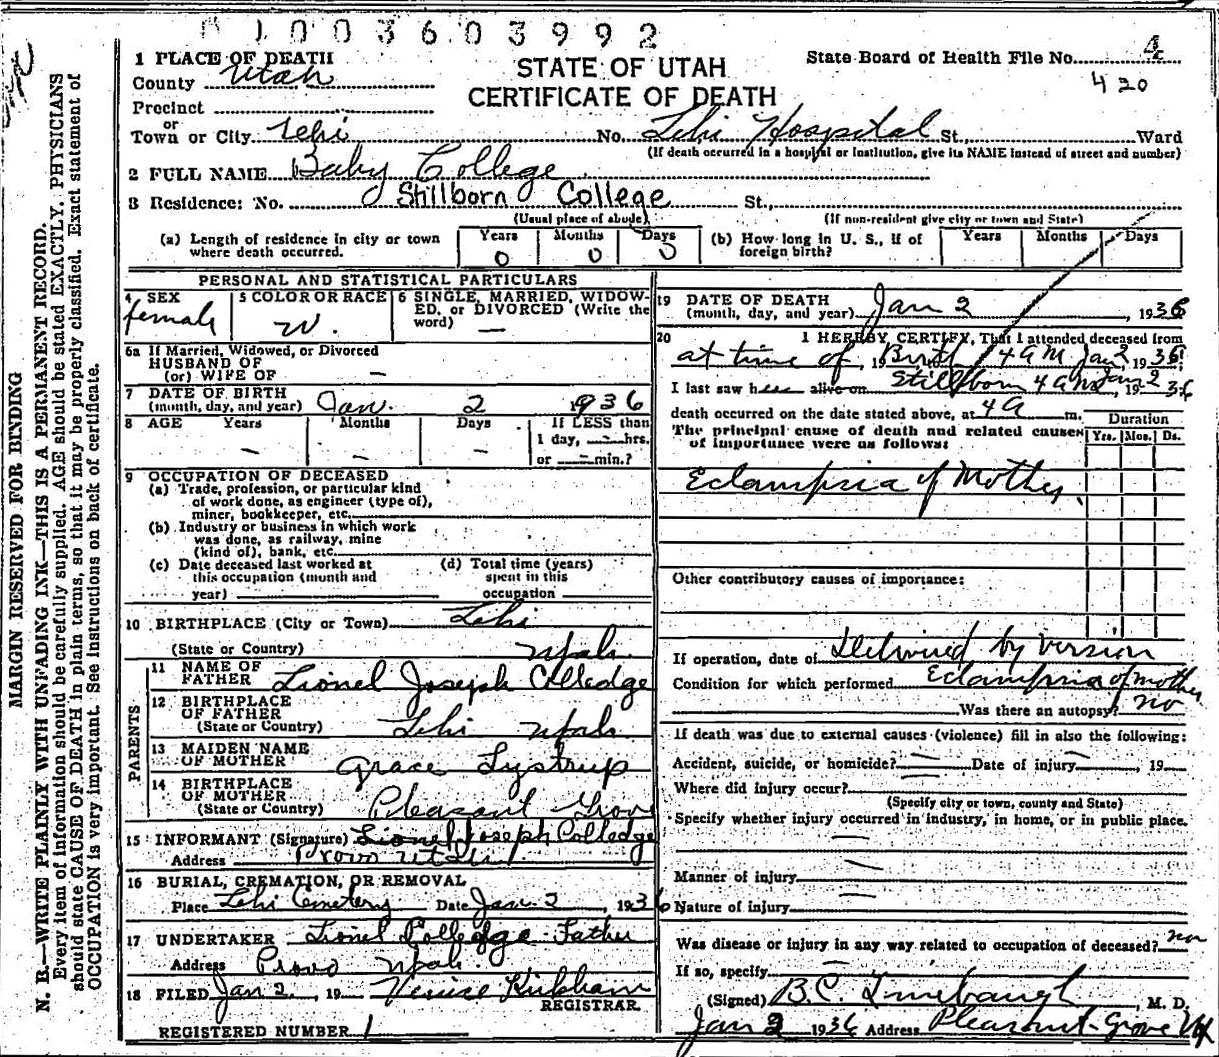 1003603992
STATE OF UTAH
CERTIFICATE OF DEATH
State Board of Health File No. 4
420
MARGIN RESERVED FOR BINDING
N. B.—WRITE PLAINLY WITH UNFADING INK—THIS IS A PERMANENT RECORD.
Every item of information should be carefully supplied. AGE should be stated EXACTLY. PHYSICIANS
should state CAUSE OF DEATH in plain terms, so that it may be properly classified. Exact statement of
OCCUPATION is very important. See instructions on back of certificate.
1 PLACE OF DEATH
County Utah
Precinct
or
Town or City Lehi No. Lehi Hospital St., Ward
(If death occurred in a hospital or institution, give its NAME instead of street and number)
2 FULL NAME Baby College
3 Residence: No. Stillborn College St.,
(Usual place of abode) (If non-resident give city or town and State)
(a) Length of residence in city or town where death occurred. Years 0 Months 0 Days 0
(b) How long in U. S., if of foreign birth? Years Months Days
PERSONAL AND STATISTICAL PARTICULARS
4 SEX female
5 COLOR OR RACE W.
6 SINGLE, MARRIED, WIDOWED, OR DIVORCED (Write the word) —
6a If Married, Widowed, or Divorced
HUSBAND OF
(or) WIFE OF —
7 DATE OF BIRTH
(month, day, and year) Jan. 2 1936
8 AGE Years — Months — Days — If LESS than
1 day, — hrs.
or — min.?
9 OCCUPATION OF DECEASED
(a) Trade, profession, or particular kind
of work done, as engineer (type of),
miner, bookkeeper, etc.
(b) Industry or business in which work
was done, as railway, mine
(kind of), bank, etc.
(c) Date deceased last worked at
this occupation (month and
year)
(d) Total time (years)
spent in this
occupation
10 BIRTHPLACE (City or Town) Lehi
(State or Country) Utah
PARENTS
11 NAME OF
FATHER Lionel Joseph Colledge
12 BIRTHPLACE
OF FATHER
(State or Country) Lehi Utah
13 MAIDEN NAME
OF MOTHER Grace Lystrup
14 BIRTHPLACE
OF MOTHER
(State or Country) Pleasant Grove
15 INFORMANT (Signature) Lionel Joseph Colledge
Address Provo Utah
16 BURIAL, CREMATION, OR REMOVAL
Place Lehi Cemetery Date Jan. 2, 1936
17 UNDERTAKER Lionel Colledge - Father
Address Provo Utah
18 FILED Jan 2, 19 Venice Kirkham
REGISTRAR.
REGISTERED NUMBER 1
19 DATE OF DEATH
(month, day, and year) Jan 2, 1936
20 I HEREBY CERTIFY, That I attended deceased from
at time of, 19 Birth 4 AM Jan 2, 1936
I last saw her alive on Stillborn 4 AM Jan 2, 1936
death occurred on the date stated above, at 4 A m.
The principal cause of death and related causes
of importance were as follows:
Duration
Yrs. Mos. Ds.
Eclampsia of Mother.
Other contributory causes of importance:
If operation, date of Delivered by version
Condition for which performed Eclampsia of mother
Was there an autopsy? no
If death was due to external causes (violence) fill in also the following:
Accident, suicide, or homicide? — Date of injury —, 19
Where did injury occur?
(Specify city or town, county and State)
Specify whether injury occurred in industry, in home, or in public place.
Manner of injury
Nature of injury
Was disease or injury in any way related to occupation of deceased? no
If so, specify
(Signed) B.C. Linebaugh, M. D.
Jan 2 1936 Address Pleasant Grove Ut